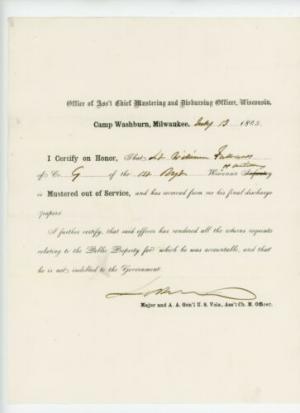 Office of Ass't Chief Mustering and Disbursing Officer, Wisconsin.
Camp Washburn, Milwaukee, July 13 1865
I Certify on Honor, That Lt William
of Co. G of the 1st Regt Wiscon
is Mustered out of Service, and has received from me his final discharge
papers.
I further certify, that said officer has rendered all the returns requests
relating to the Public Property for which he was accountable, and that
he is not indebted to the Government.
Major and A. A. Gen'l U. S. Vols., Ass't Ch. M. Officer.